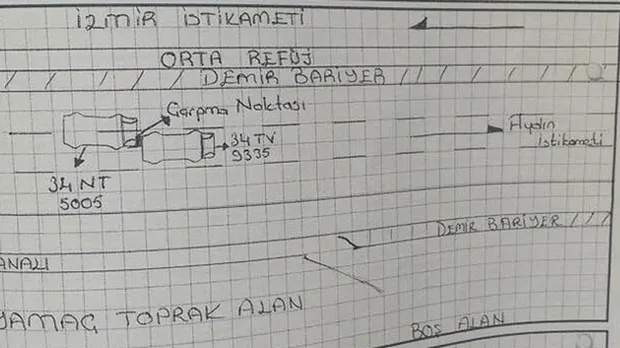 İZMİR İSTİKAMETİ
ORTA REFÜJ
DEMİR BARİYER
Çarpma Noktası
34 TV
9335
Aydın
istikameti
34 NT
5005
DEMİR BARİYER
ANALI
YAMAÇ TOPRAK ALAN
BOŞ ALAN